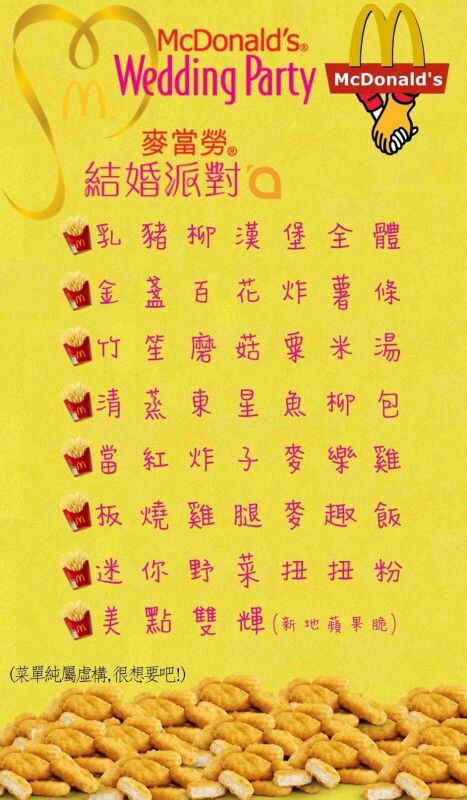 McDonald's®
Wedding Party
McDonald's
麥當勞®
結婚派對
乳豬柳漢堡全體
金盞百花炸薯條
竹笙磨菇粟米湯
清蒸東星魚柳包
當紅炸子麥樂雞
板燒雞腿麥趣飯
迷你野菜扭扭粉
美點雙輝(新地蘋果脆)
(菜單純屬虛構,很想要吧!)